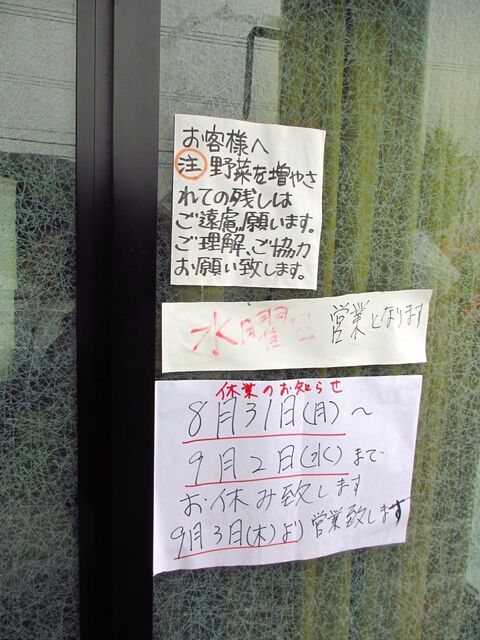 お客様へ
注 野菜を増やさ
れての残しは
ご遠慮願います。
ご理解、ご協力
お願い致します。
水曜日 営業となります
休業のお知らせ
8月31日(月)～
9月2日(水)まで
お休み致します
9月3日(木)より営業致します